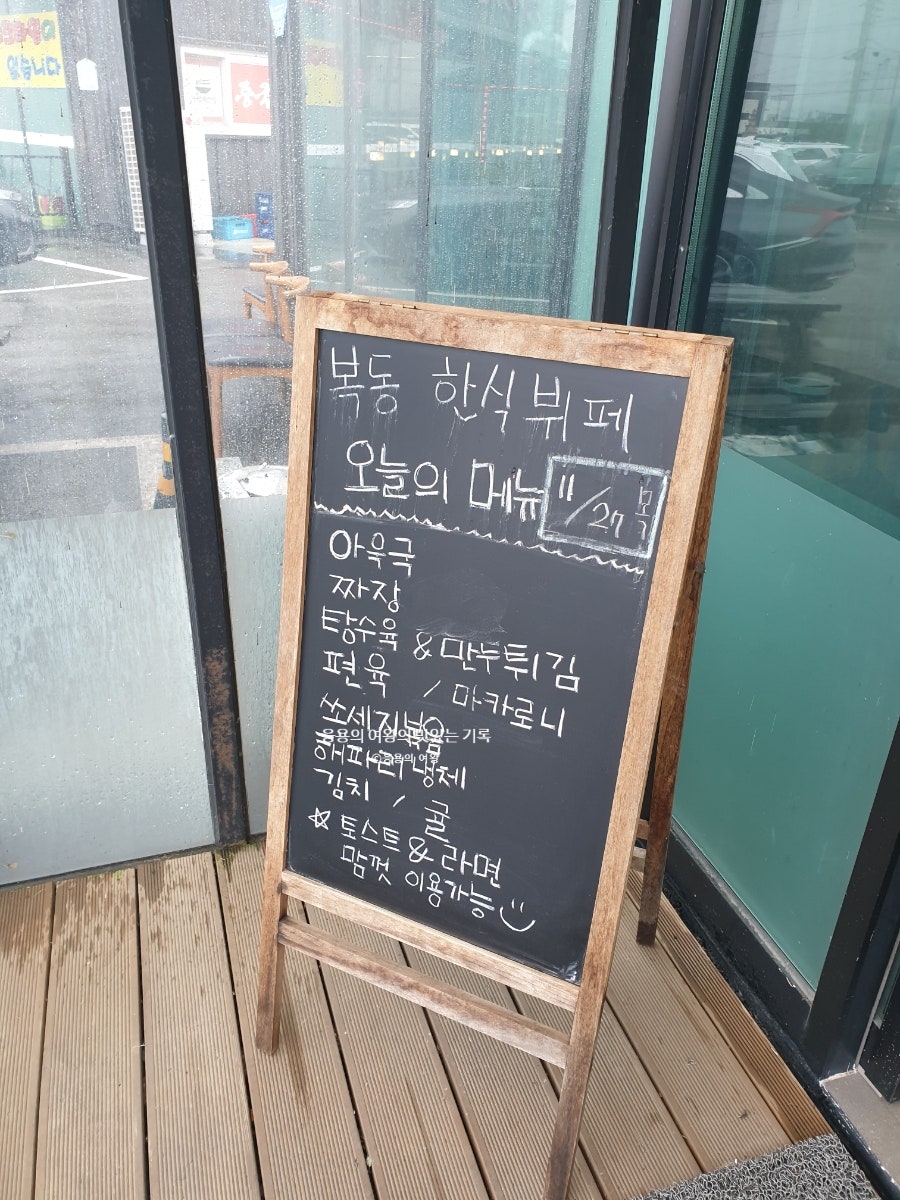 있습니다
복동 한식뷔페
오늘의 메뉴 11/27 목
아욱국
짜장
탕수육 & 만두튀김
편육 / 마카로니
쏘세지볶음
용용의 여왕의 맛있는 기록
해파리냉체
©용용의 여왕
김치 / 굴
☆ 토스트 & 라면
맘껏 이용가능